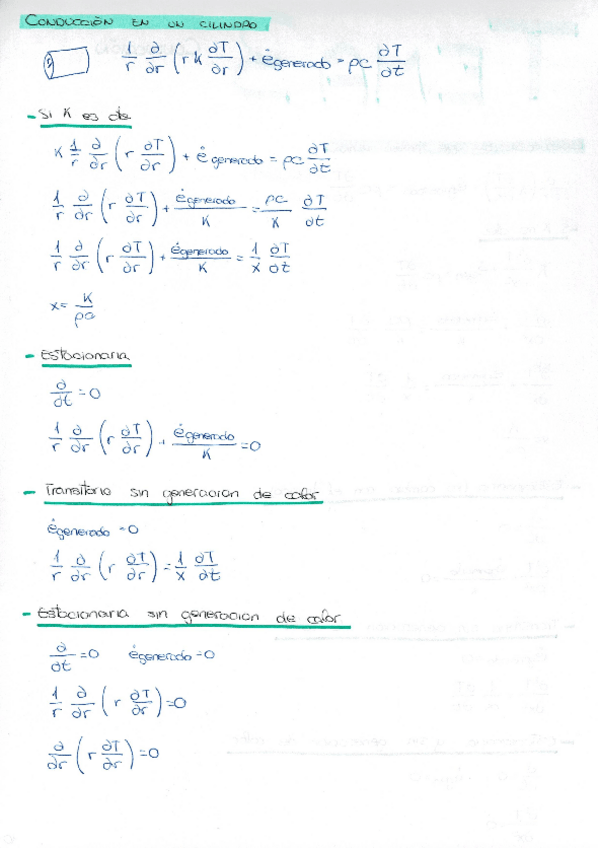 CONDUCCIÓN EN UN CILINDRO
1/r ∂/∂r (r k ∂T/∂r) + ėgenerado = ρc ∂T/∂t
- Si K es cte
K 1/r ∂/∂r (r ∂T/∂r) + ė generado = ρc ∂T/∂t
1/r ∂/∂r (r ∂T/∂r) + ėgenerado/K = ρc/K ∂T/∂t
1/r ∂/∂r (r ∂T/∂r) + ėgenerado/K = 1/x ∂T/∂t
x = K/ρc
- Estacionaria
∂/∂t = 0
1/r ∂/∂r (r ∂T/∂r) + ėgenerado/K = 0
- Transitorio sin generacion de calor
ėgenerado = 0
1/r ∂/∂r (r ∂T/∂r) = 1/x ∂T/∂t
- Estacionaria sin generacion de calor
∂/∂t = 0 ėgenerado = 0
1/r ∂/∂r (r ∂T/∂r) = 0
∂/∂r (r ∂T/∂r) = 0